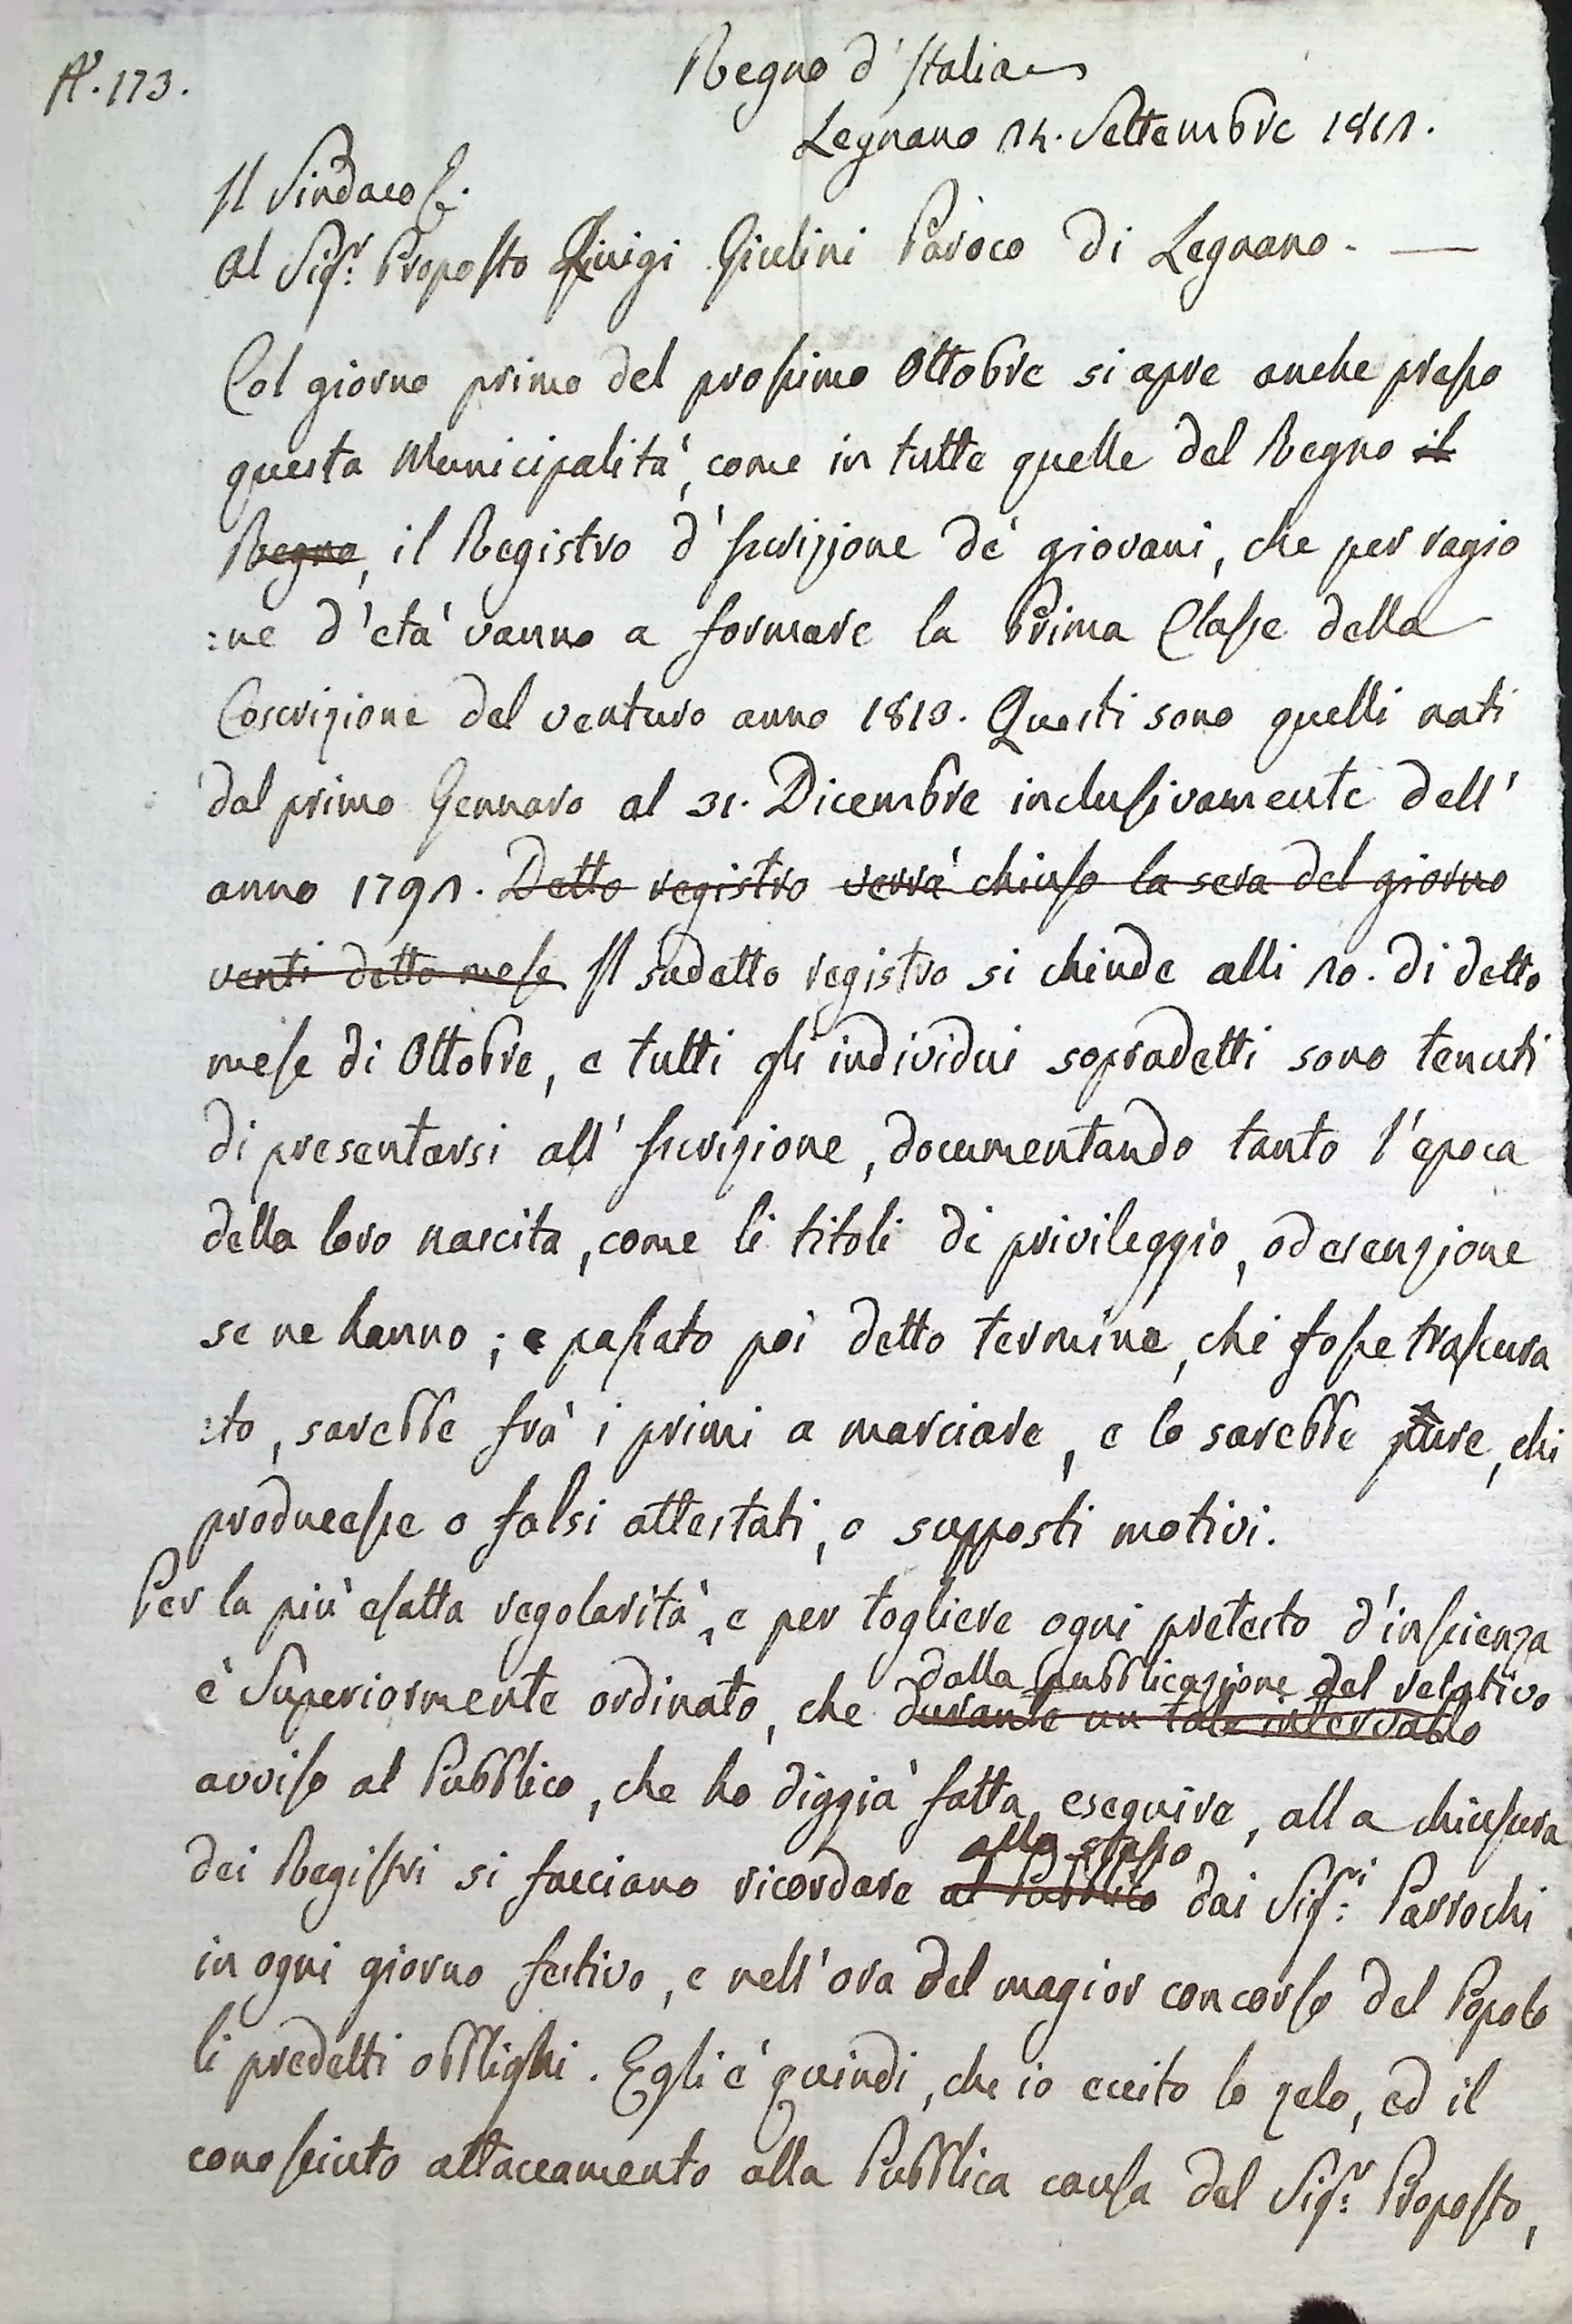 N.° 173.
Regno d'Italia
Legnano 14. Settembre 1811.
Il Sindaco
Al Sig.r Proposto Luigi Giulini Paroco di Legnano. —
Col giorno primo del prossimo Ottobre si apre anche presso
questa Municipalità, come in tutte quelle del Regno il
Regno, il Registro d'Iscrizzione de' giovani, che per ragio
:ne d'età vanno a formare la Prima Classe della
Coscrizione del venturo anno 1812. Questi sono quelli nati
dal primo Gennaro al 31. Dicembre inclusivamente dell'
anno 1791. Detto registro verrà chiuso la sera del giorno
venti detto mese Il sudetto registro si chiude alli 20. di detto
mese di Ottobre, e tutti gli individui sopradetti sono tenuti
di presentarsi all'Iscrizione, documentando tanto l'epoca
della loro nascita, come li titoli di privileggio, od esenzione
se ne hanno; e passato poi detto termine, chi fosse trascura
:to, sarebbe frà i primi a marciare, e lo sarebbe pure, chi
producesse o falsi attestati, o supposti motivi.
Per la più esatta regolarità, e per togliere ogni pretesto d'inscienza
dalla pubblicazione del relativo
è Superiormente ordinato, che durante un tale intervallo
avviso al Pubblico, che ho diggià fatta eseguire, alla chiusura
allo stesso
dei Registri si facciano ricordare al Pubblico dai Sig.ri Parrochi
in ogni giorno festivo, e nell'ora del magior concorso del Popolo
li predetti obblighi. Egli è quindi, che io eccito lo zelo, ed il
conosciuto attaccamento alla Pubblica causa del Sig.r Proposto,